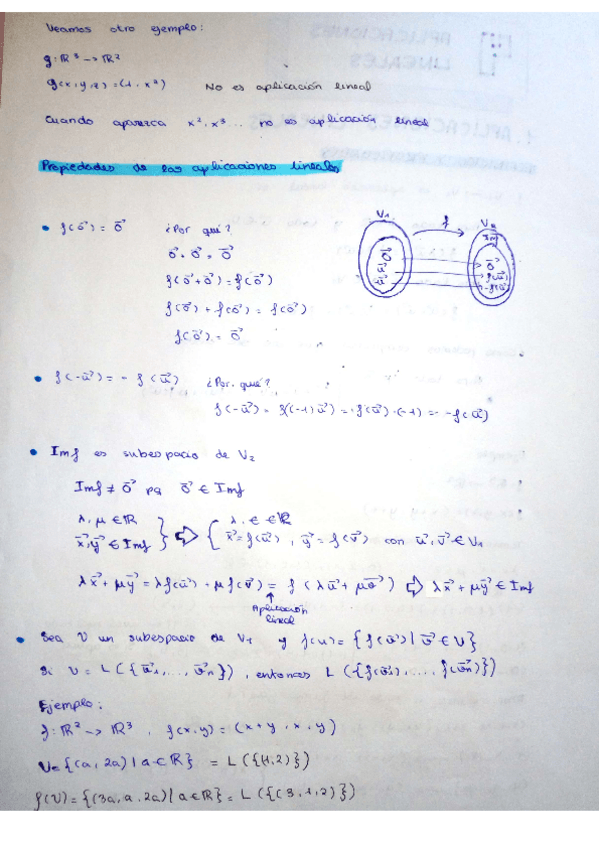 Veamos otro ejemplo:
g: ℝ³ -> ℝ²
g(x,y,z)=(1, x²) No es aplicación lineal
Cuando aparezca x², x³... no es aplicación lineal
Propiedades de las aplicaciones lineales
• f(0⃗) = 0⃗ ¿Por qué?
0⃗ + 0⃗ = 0⃗
f(0⃗+0⃗) = f(0⃗)
f(0⃗) + f(0⃗) = f(0⃗)
f(0⃗) = 0⃗
V₁ f V₂
Imf
• f(-u⃗) = - f(u⃗) ¿Por qué?
f(-u⃗) = f((-1)u⃗) = f(u⃗)·(-1) = -f(u⃗)
• Imf es subespacio de V₂
Imf ≠ 0⃗ pq 0⃗ ∈ Imf
λ, μ ∈ ℝ } ⇨ { λ, ∈ ∈ ℝ
x⃗, y⃗ ∈ Imf } ⇨ { x⃗=f(u⃗), y⃗=f(v⃗) con u⃗, v⃗ ∈ V₁
λx⃗ + μy⃗ = λf(u⃗) + μf(v⃗) = f(λu⃗ + μv⃗) ⇨ λx⃗ + μy⃗ ∈ Imf
↑
Aplicación
lineal
• Sea U un subespacio de V₁ y f(U) = {f(v⃗) | v⃗ ∈ U}
Si U = L({v⃗₁, ..., v⃗n}), entonces L({f(v⃗₁), ..., f(v⃗n)})
Ejemplo:
f: ℝ² -> ℝ³, f(x,y) = (x+y, x, y)
U={(a, 2a) | a ∈ ℝ} = L({(1,2)})
f(U)={(3a, a, 2a) | a ∈ ℝ} = L({(3,1,2)})